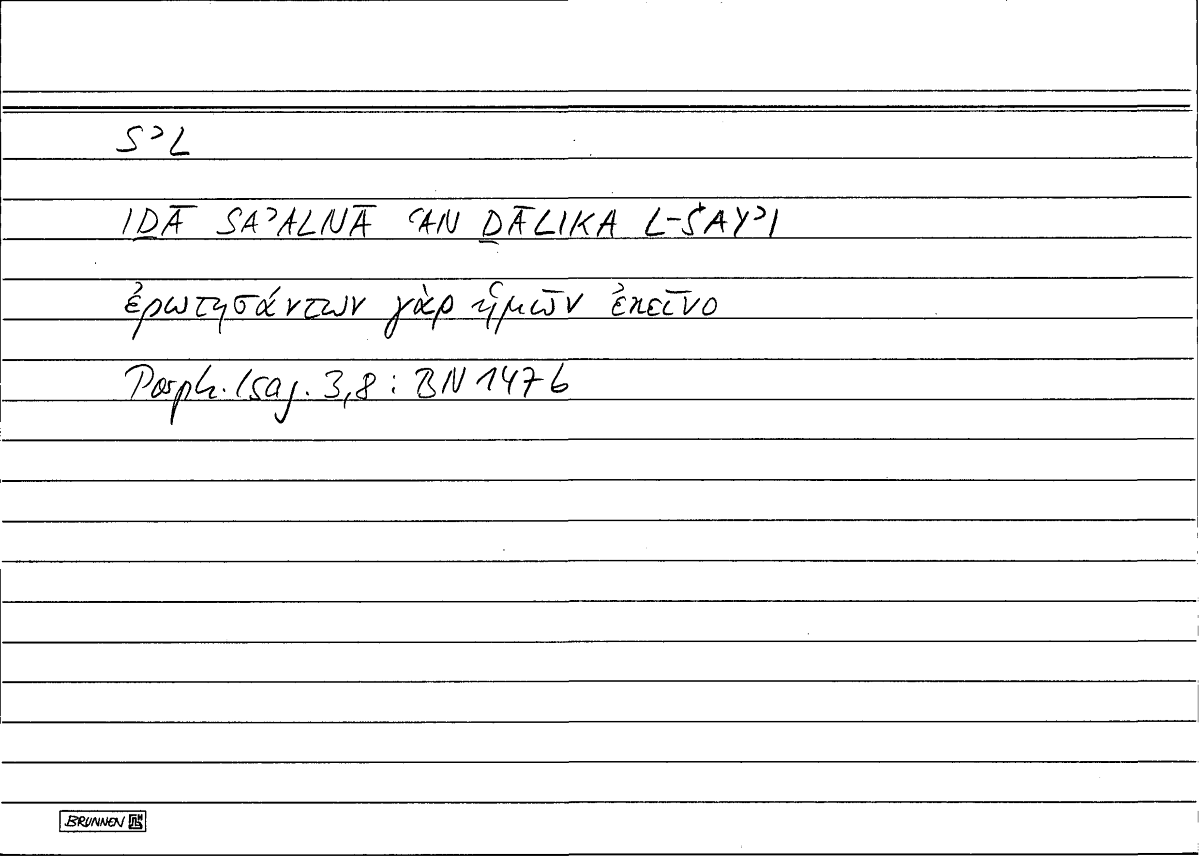 SʾL
IḎĀ SAʾALNĀ ʿAN ḎĀLIKA L-ŠAYʾI
ἐρωτησάντων γὰρ ἡμῶν ἐκεῖνο
Porph. Isag. 3,8 : BN 147 b
BRUNNEN